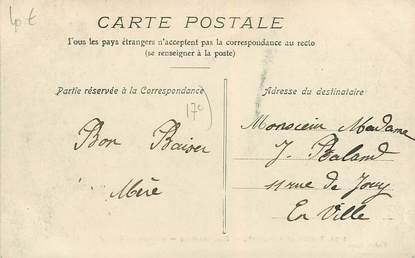 4p €
CARTE POSTALE
Tous les pays étrangers n'acceptent pas la correspondance au recto
(se renseigner à la poste)
Partie réservée à la Correspondance
Adresse du destinataire
170
Bon Baiser
Mère
Monsieur Madame
J. Baland
11 rue de Jouy
En Ville